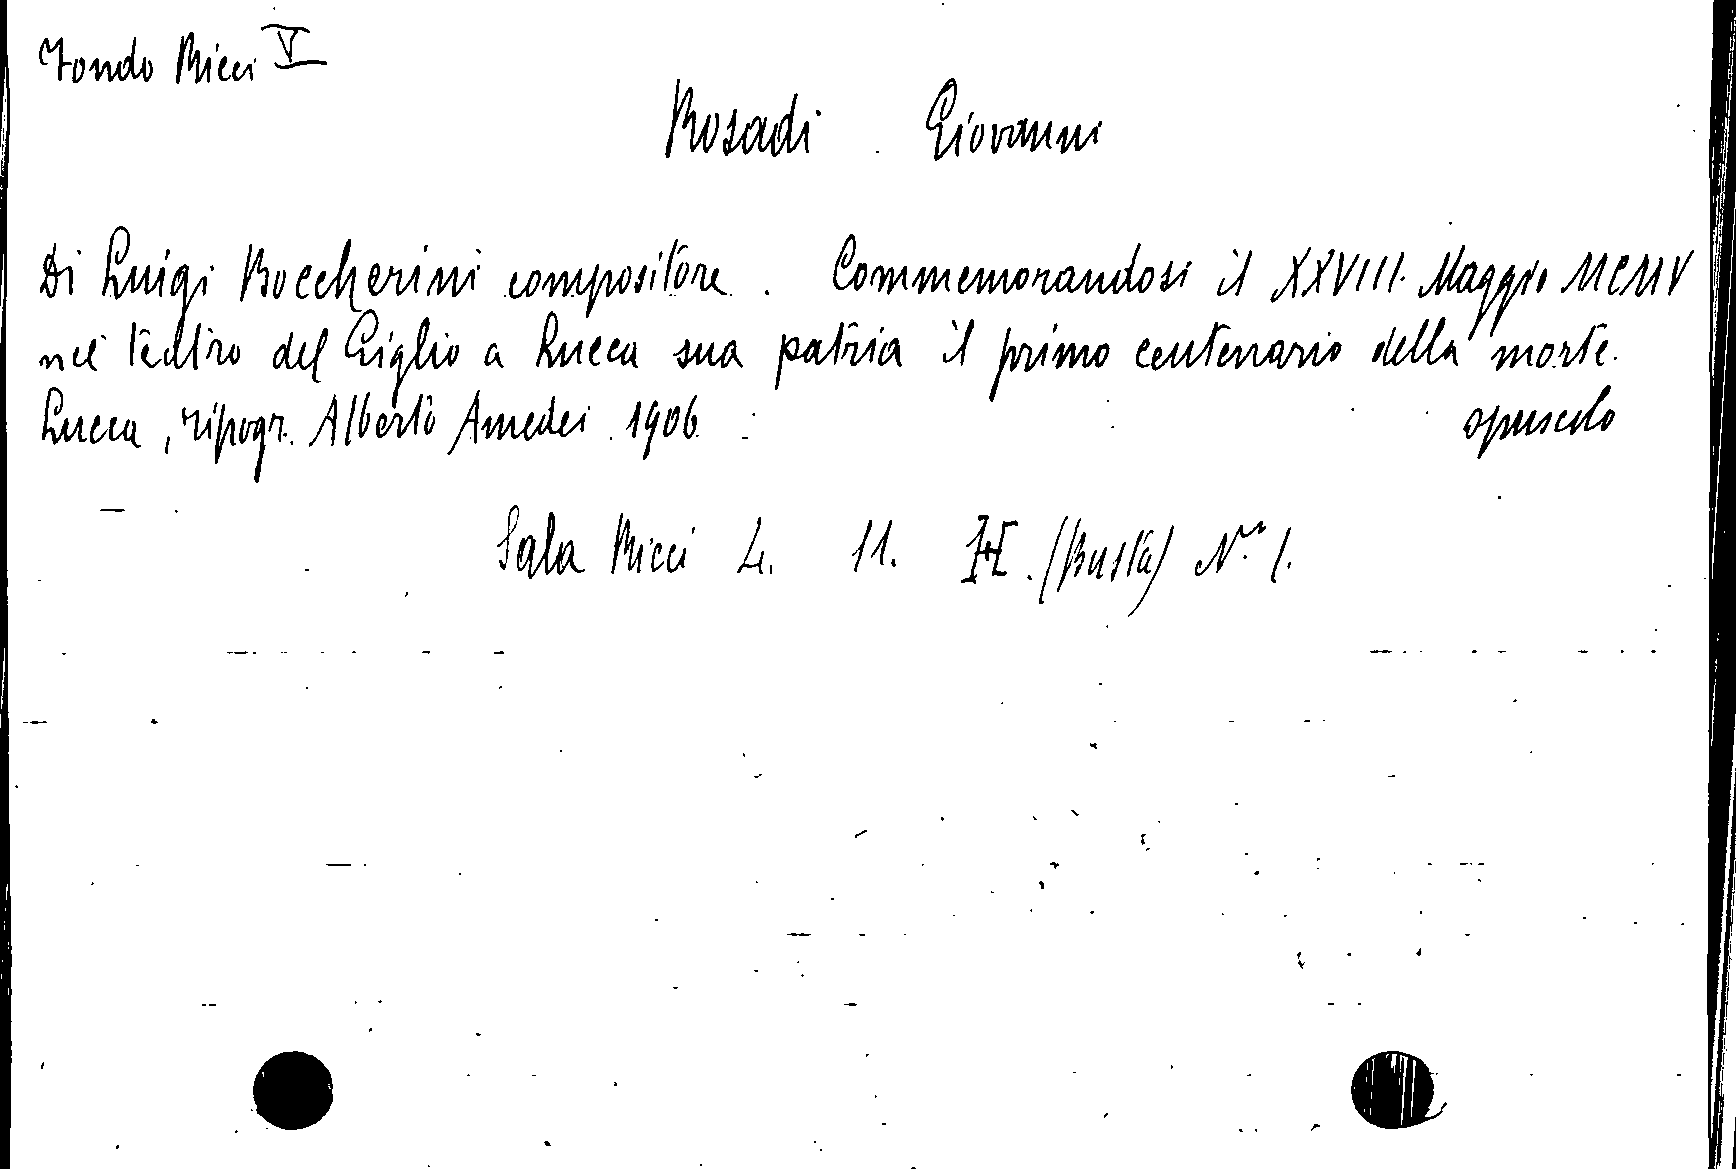 Fondo Ricci V
Rosadi Giovanni
Di Luigi Boccherini compositore. Commemorandosi il XXVIII. Maggio MCMV
nel teatro del Giglio a Lucca sua patria il primo centenario della morte.
Lucca, Tipogr. Alberto Amedei 1906 opuscolo
Sala Ricci 4. 11. (Busta) N.º 1.